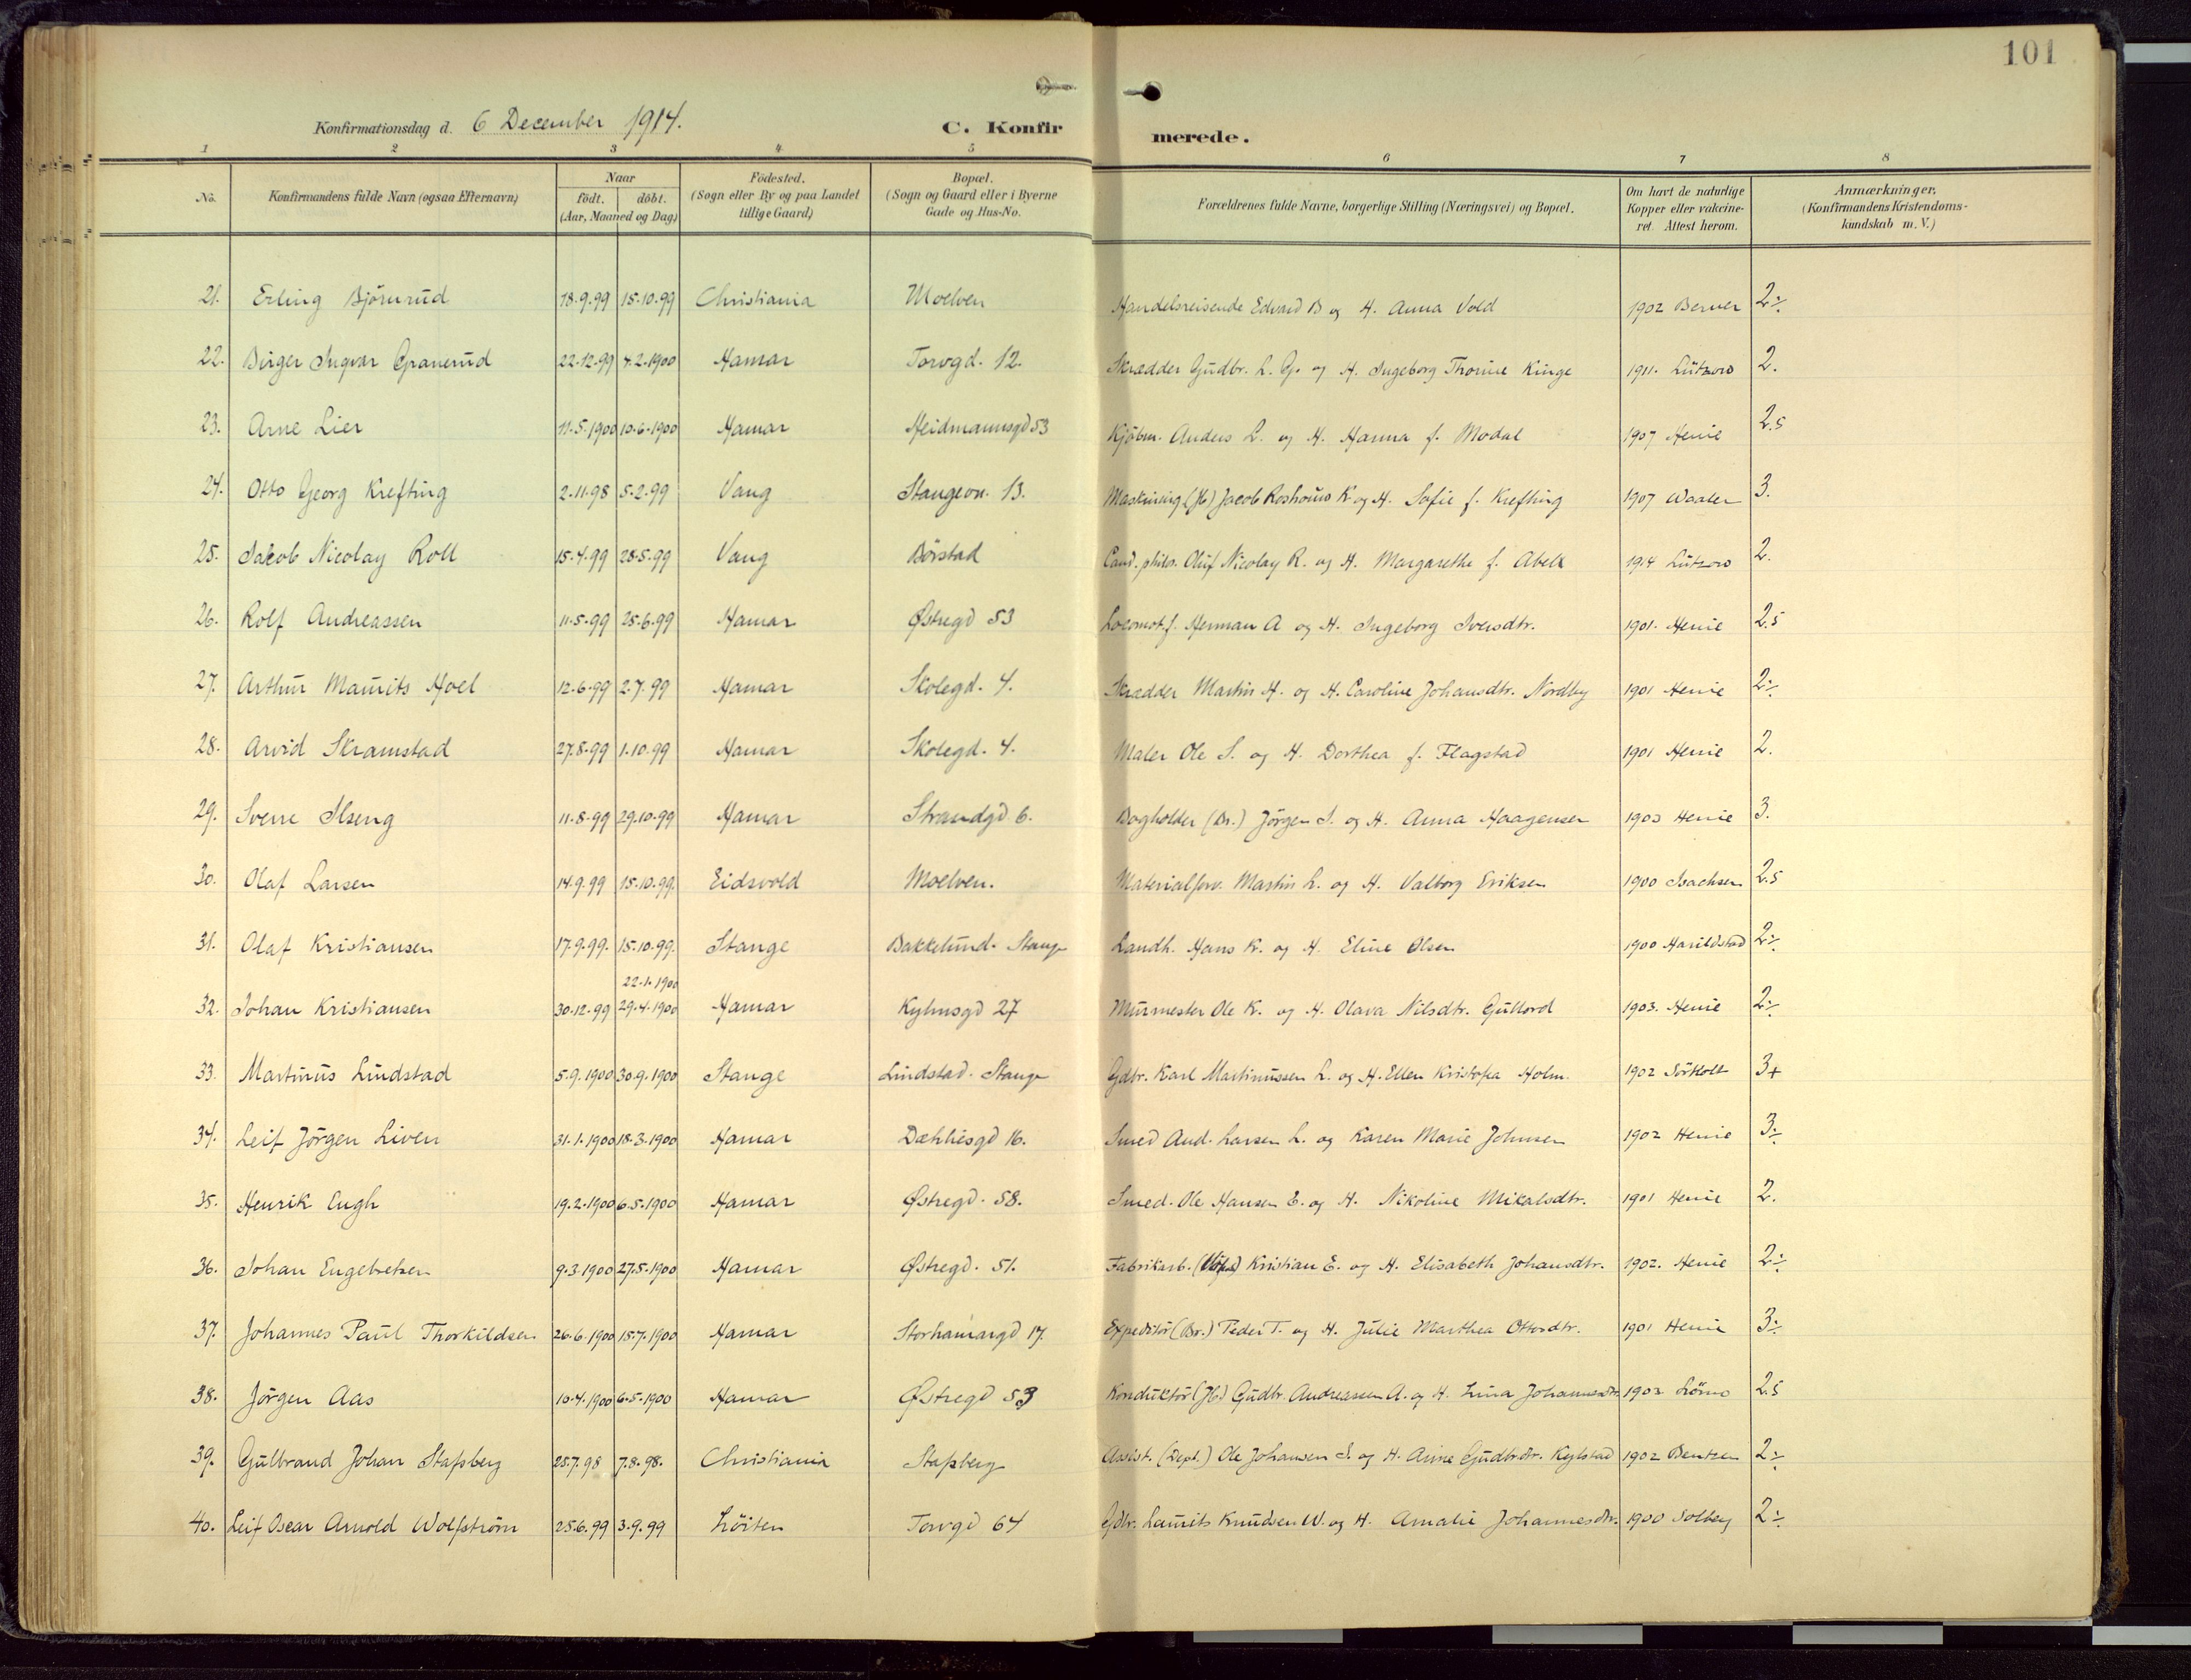 101
Konfirmationsdag d. 6 December 1914. C. Konfirmerede.
1 2 3 4 5 6 7 8
No. Konfirmandens fulde Navn (ogsaa Efternavn) Naar födt. döbt. (Aar, Maaned og Dag) Födested. (Sogn eller By og paa Landet tillige Gaard) Bopæl. (Sogn og Gaard eller i Byerne Gade og Hus-No. Forældrenes fulde Navne, borgerlige Stilling (Næringsvei) og Bopæl. Om havt de naturlige Kopper eller vakcineret. Attest herom. Anmærkninger, (Konfirmandens Kristendomskundskab m. V.)
21. Erling Björnrud 18.9.99 15.10.99 Christiania Moelven Handelsreisende Edvard B og H. Anna Vold 1902 Berner 2÷
22. Birger Ingvar Granerud 22.12.99 4.2.1900 Hamar Torvgd. 12. Skrædder Gudbr. L. G. og H. Ingeborg Thorine Kinge 1911. Lützow 2.
23. Arne Lier 11.5.1900 10.6.1900 Hamar Heidmannsgd 53 Kjöbm. Anders L. og H. Hanna f. Modal 1907 Henie 2.5
24. Otto Georg Krefting 2.11.98 5.2.99 Vang Stangeov. 13. Jacob K og H. Sofie f. Krefting 1907 Waaler 3.
25. Jakob Nicolay Roll 15.4.99 28.5.99 Vang Börstad Cand. philos. Oluf Nicolay R. og H. Margarethe f. Abel 1914 Lützow 2.
26. Rolf Andreassen 11.5.99 25.6.99 Hamar Østregd 53 Locomotf. Herman A og H. Ingeborg Iversdtr. 1901. Henie 2.5
27. Arthur Maurits Hoel 12.6.99 2.7.99 Hamar Skolegd. 4. Skrædder Martin H. og H. Caroline Johansdtr. Nordby 1901 Henie 2÷
28. Arvid Skramstad 27.8.99 1.10.99 Hamar Skolegd. 4. Maler Ole S. og H. Dorthea f. Flagstad 1901 Henie 2.
29. Sverre Ilseng 11.8.99 29.10.99 Hamar Strandgd 6. Bogholder (Br.) Jörgen I. og H. Anna Haagensen 1903 Henie 3.
30. Olaf Larsen 14.9.99 15.10.99. Eidsvold Moelven. Materialforv. Martin L. og H. Valborg Eriksen 1900 Isachsen 2.5
31. Olaf Kristiansen 17.9.99. 15.10.99. Stange Bakkelund. Stange Landh. Hans K. og H. Eline Olsen 1900 2÷
22.1.1900
32. Johan Kristiansen 30.12.99 29.4.1900 Hamar Kyhnsgd 27 Murmester Ole K. og H. Olava Nilsdtr. Gullord 1903. Henie 2÷
33. Martinus Lindstad 5.9.1900 30.9.1900 Stange Lindstad. Stange Gdbr. Karl Martinussen L. og H. Ellen Kristofa Holm. 1902 Sörholt 3+
34. Leif Jörgen Liven 31.1.1900 18.3.1900 Hamar Dæhliesgd 16. Smed And. Larsen L. og Karen Marie Johnsen 1902 Henie 3÷
35. Henrik Engh 19.2.1900 6.5.1900 Hamar Østregd. 58. Smed. Ole Hansen E. og H. Nikoline Mikalsdtr. 1901 Henie 2.
36. Johan Engebretsen 9.3.1900 27.5.1900 Hamar Østregd. 51. Fabrikarb. Kristian E. og H. Elisabeth Johansdtr. 1902. Henie 2÷
37. Johannes Paul Thorkildsen 26.6.1900 15.7.1900 Hamar Storhamargd 17. Expeditör (Br.) Peder T. og H. Julie Marthea Ottersdtr. 1901 Henie 3÷
38. Jörgen Aas 10.4.1900 6.5.1900 Hamar Østregd 53 Konduktör (Jb.) Gudbr. Andreassen A. og H. Lina Johannesdtr. 1902 2.5
39. Gulbrand Johan Stafsberg 25.7.98 7.8.98. Christiania Stafsberg Assist. (Dept.) Ole Johansen S. og H. Anne Gudbrdtr. 1902 Bentzen 2÷
40. Leif Oscar Arnold Wolfström 25.6.99 3.9.99 Löiten Torvgd 64 Gdbr. Laurits Knudsen W. og H. Amalie Johannesdtr. 1900 Solberg 2÷